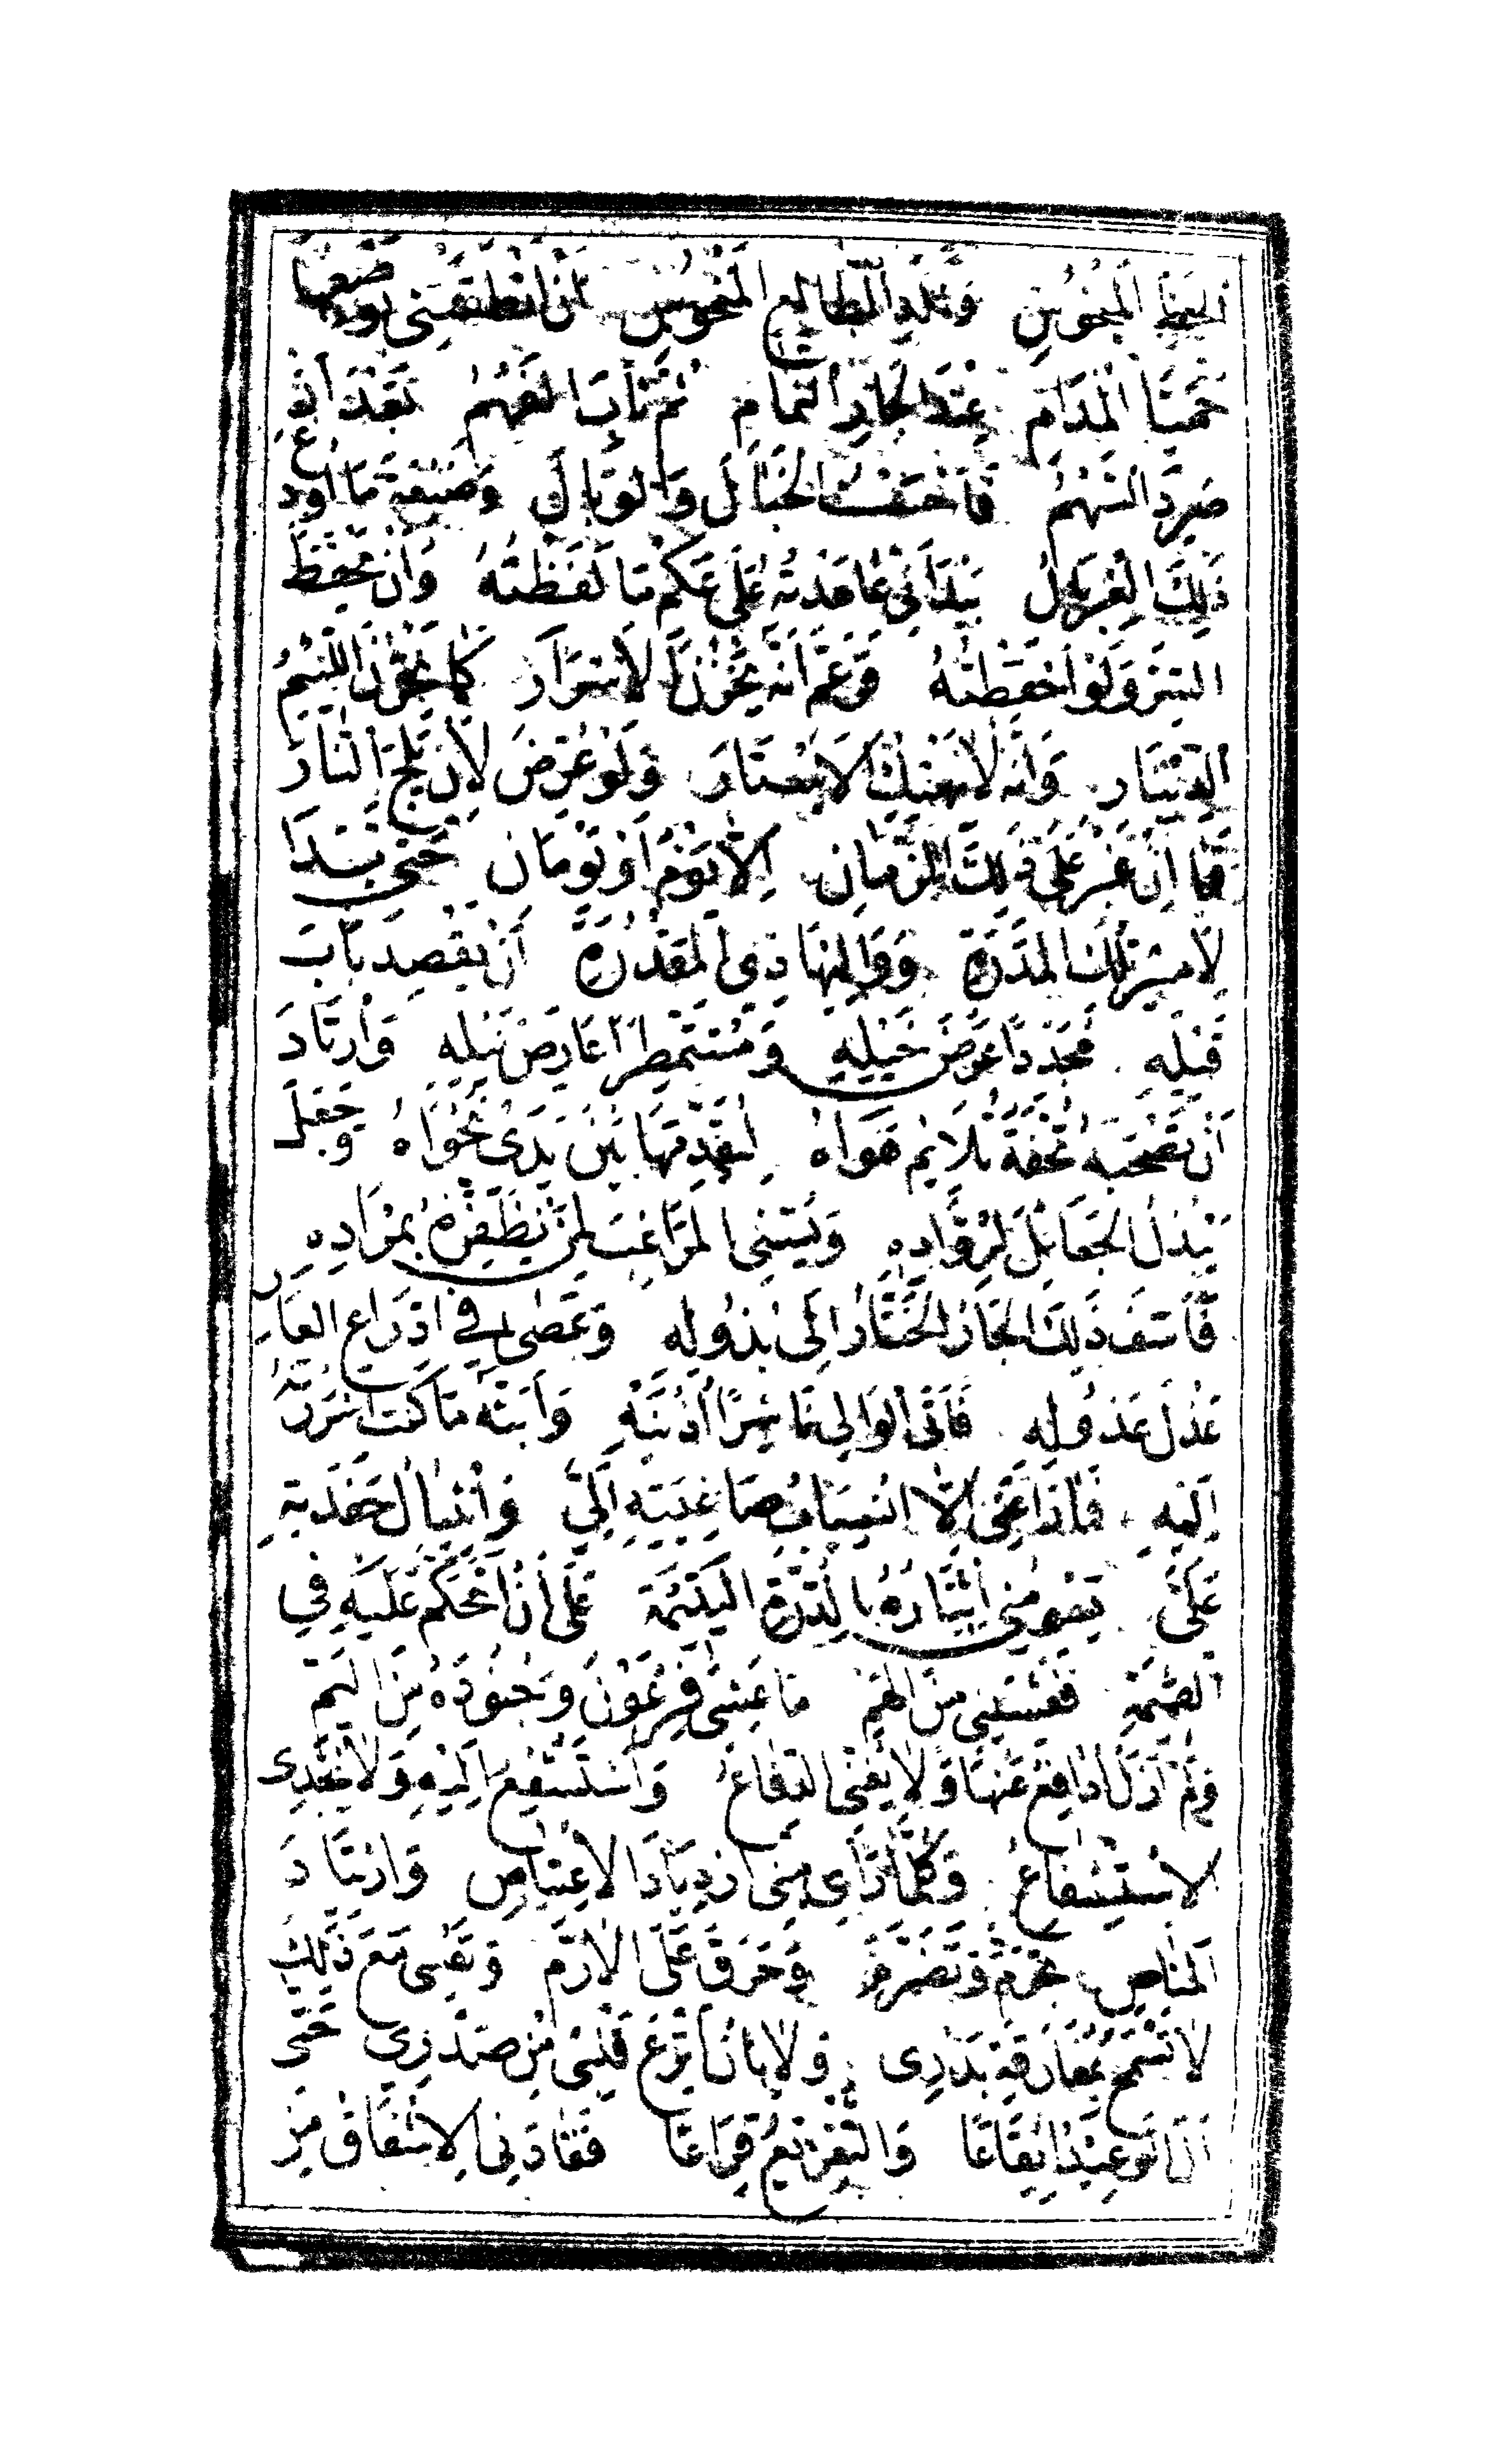 الحظ المبخوس ونكد الطالع المنحوس ان انطقتني بوصفها
حميا المدام عند الجار النمام ثم ثاب الفهم بعد ان
صرد السهم فاحسست الخبال والوبال وضيعة ما اودع
ذلك الغربال بيد اني عاهدته على عكم ما لفظته وان يحفظ
السر ولو احفظته فزعم انه يخزن الاسرار كما يخزن اللئيم
الدينار وانه لا يهتك الاستار ولو عرض لان يلج النار
فما ان غبر على ذلك الزمان الا يوم او يومان حتى بدا
لامير تلك المدرة وواليها ذي المقدرة ان يقصد باب
قيله مجددا عرض خيله ومستمطرا عارض نيله وارتاد
ان تصحبه تحفة تلائم هواه ليقدمها بين يدي نجواه وجعل
يبذل الجعائل لرواده ويسني المراغب لمن يظفره بمراده
فاسف ذلك الجار الختار الى بذوله وعصى في ادراع العار
عذل عذوله فاتى الوالي ناشرا اذنيه وابثه ما كنت اسررته
اليه فما راعني الا انسياب صاغيته الي وانثيال حفدته
علي يسومني ايثاره بالدرة اليتيمة على ان اتحكم عليه في
القيمة فغشيني من الهم ما غشي فرعون وجنوده من اليم
ولم ازل ادافع عنها ولا يغني الدفاع واستشفع اليه ولا يجدي
الاستشفاع وكلما راى مني ازدياد الاعتياص وارتياد
المناص تجرم وتضرم وحرق علي الارم ونفسي مع ذلك
لا تسمح بمفارقة بدري ولا بان انزع قلبي من صدري حتى
آل الوعيد ايقاعا والتقريع قراعا فقادني الاشفاق من